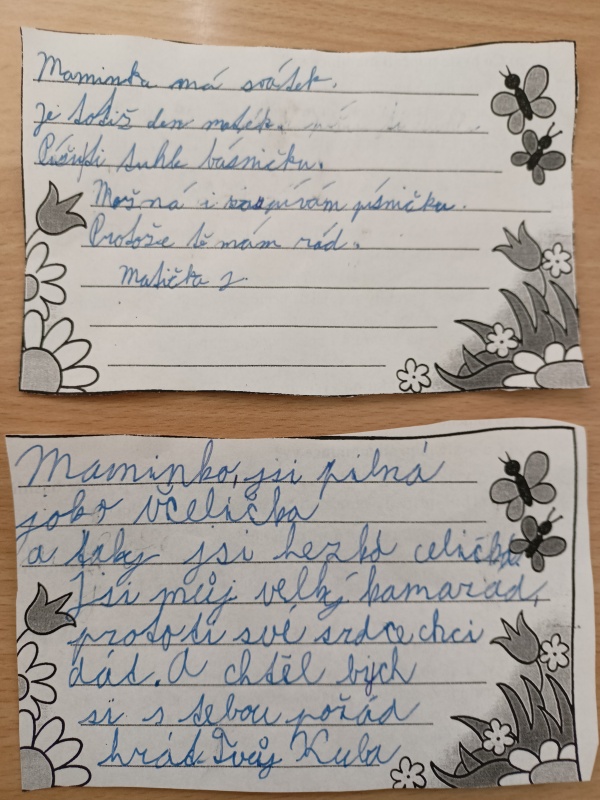 Maminka má svátek.
Je totiž den matek.
Píšu ti tuhle básničku.
Možná i zazpívám písničku.
Protože tě mám rád.
Matička J.
Maminko, jsi pilná
jako včelička
a taky jsi hezká celičká.
Jsi můj velký kamarád,
proto ti své srdce chci
dát. A chtěl bych
si s tebou pořád
hrát. Tvůj Kuba